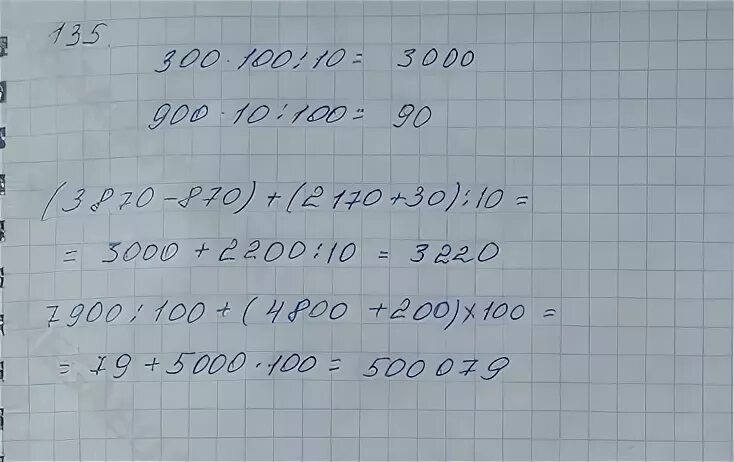 135.
300 · 100 : 10 = 3000
900 · 10 : 100 = 90
(3870 - 870) + (2170 + 30) : 10 =
= 3000 + 2200 : 10 = 3220
7900 : 100 + (4800 + 200) × 100 =
= 79 + 5000 · 100 = 500 079